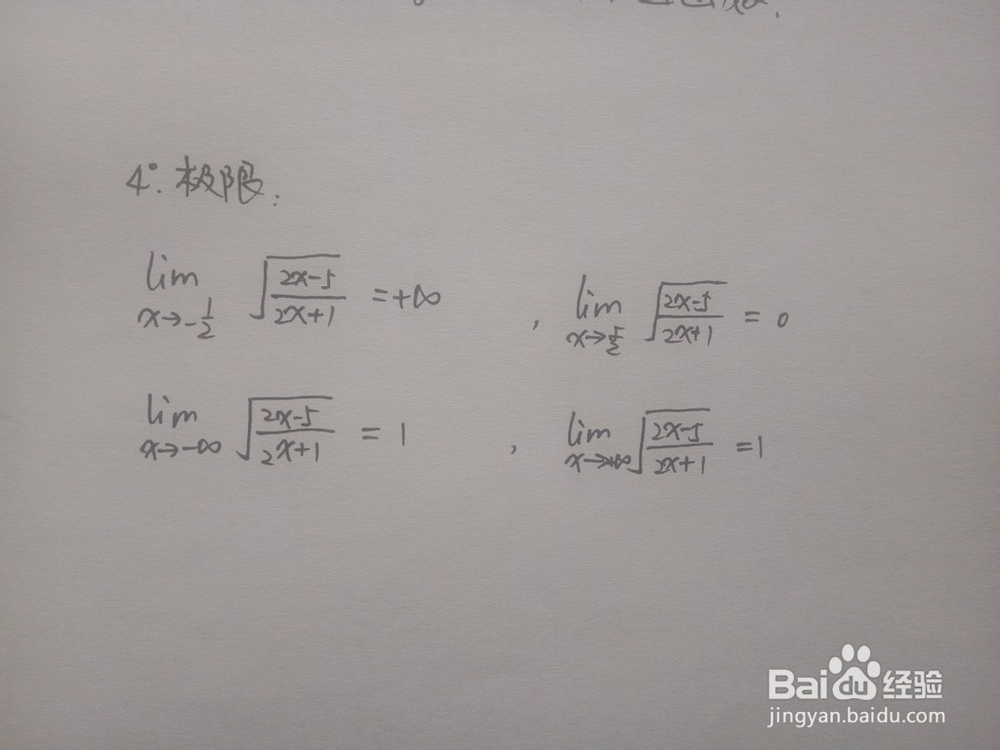 4°. 极限:
lim x→-1/2 √((2x-5)/(2x+1)) = +∞ , lim x→5/2 √((2x-5)/(2x+1)) = 0
lim x→-∞ √((2x-5)/(2x+1)) = 1 , lim x→+∞ √((2x-5)/(2x+1)) = 1
Baidu 经验
jingyan.baidu.com